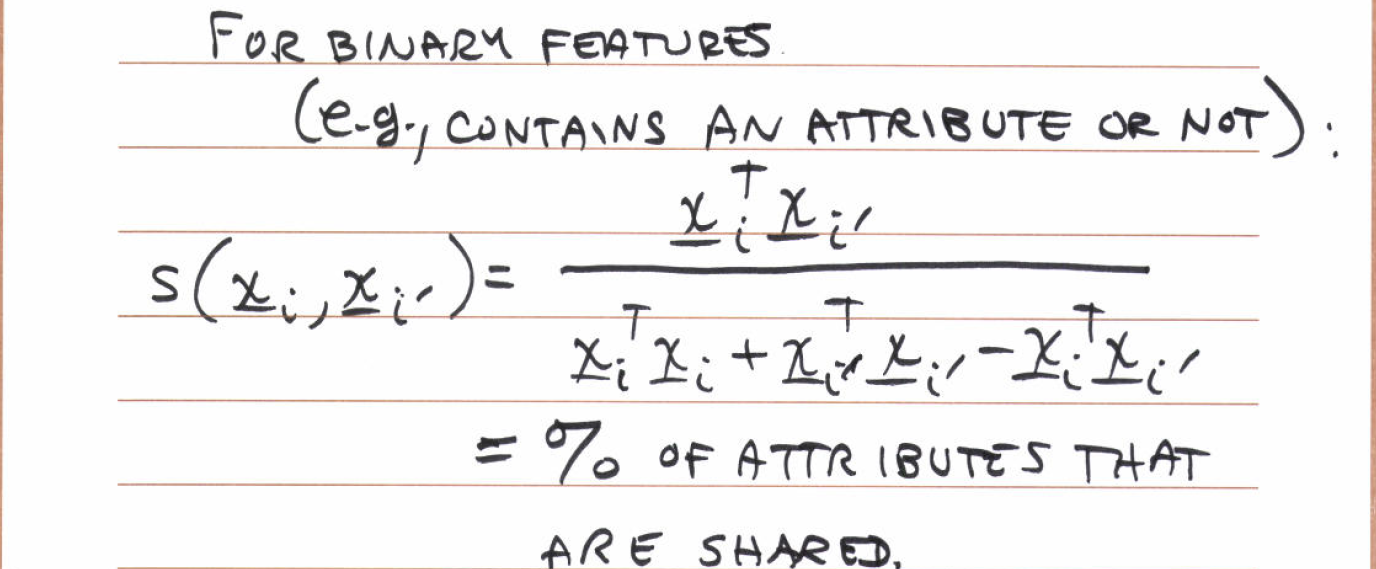 FOR BINARY FEATURES
(e.g., CONTAINS AN ATTRIBUTE OR NOT):
s(x̲ᵢ, x̲ᵢ′) = x̲ᵢᵀ x̲ᵢ′ / (x̲ᵢᵀ x̲ᵢ + x̲ᵢ′ᵀ x̲ᵢ′ - x̲ᵢᵀ x̲ᵢ′)
= % OF ATTRIBUTES THAT
ARE SHARED.